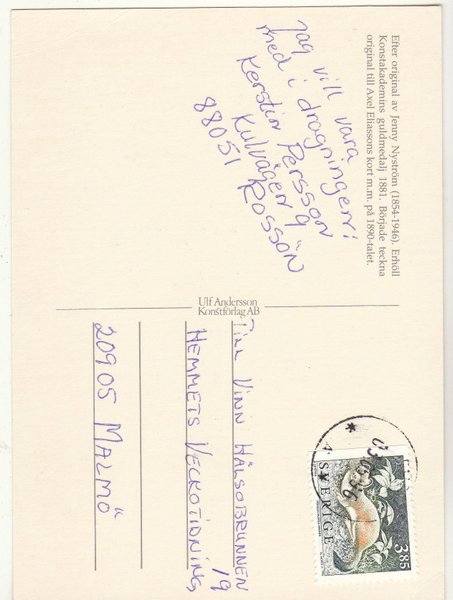 Efter original av Jenny Nyström (1854-1946). Erhöll
Konstakademins guldmedalj 1881. Började teckna
original till Axel Eliassons kort m.m. på 1890-talet.
Jag vill vara
med i dragningen:
Kerstin Persson
Kulvägen 9
88051 ROSSÖN
Ulf Andersson
Konstförlag AB
TILL VINN HÄLSOBRUNNEN
19
HEMMETS VECKOTIDNING,
20905 MALMÖ
SVERIGE
3.85